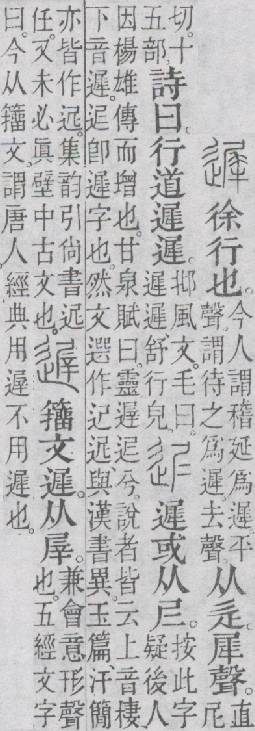 遲徐行也。今人謂稽延爲遲平聲。謂待之爲遲去聲。从辵。犀聲。直尼
切。十五部。詩曰。行道遲遲。邶風文。毛曰。遲遲舒行皃。遲或从𡰥。按此字疑後人
因楊雄傳而增也。甘泉賦曰。靈遲迟兮。說者皆云上音棲、下音遲。迟卽遲字也。然文選作迉迟、與漢書異。玉篇、汗簡
亦皆作迟。集韵引尚書迟任。又未必眞壁中古文也。遟籒文遲。从屖。兼會意形聲也。五經文字
曰。今从籒文。謂唐人經典用遟不用遲也。